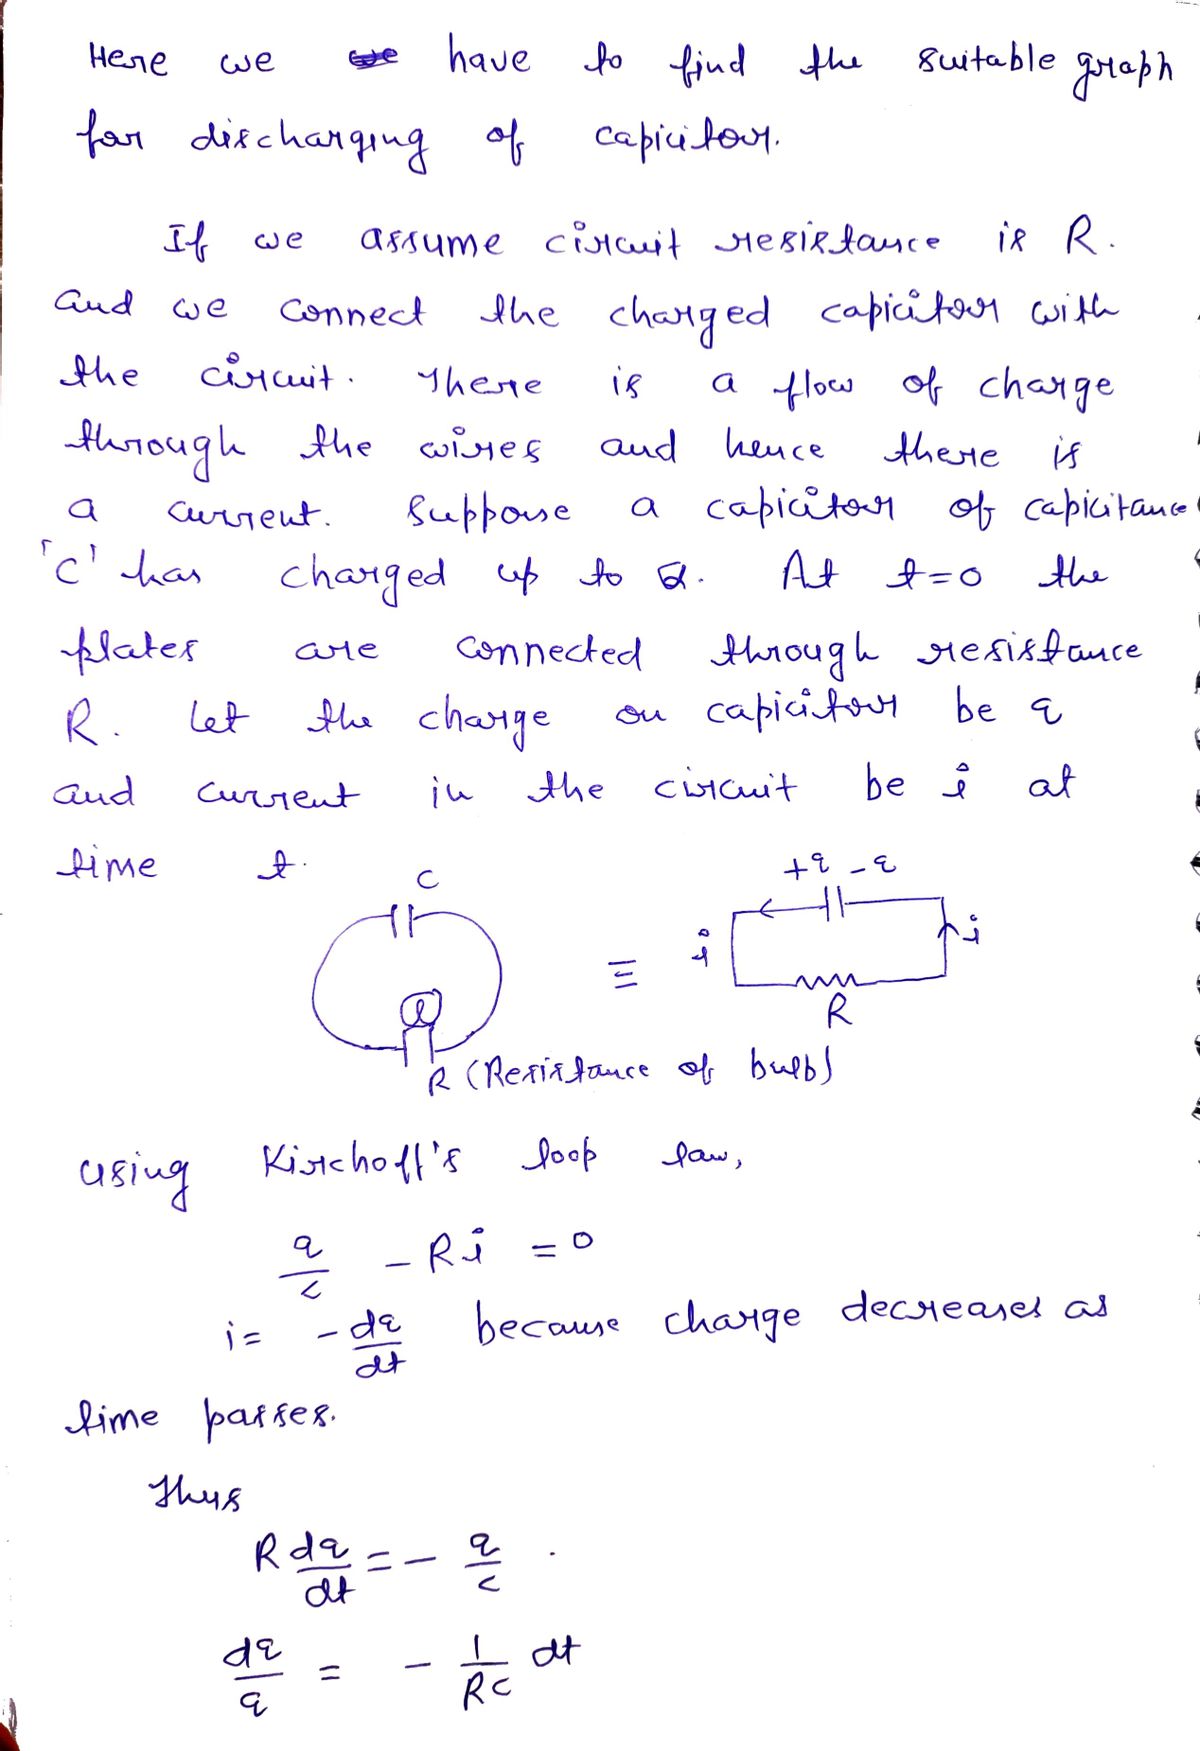 Here we we have to find the suitable graph
for discharging of capicitour.
If we assume circuit resistance is R.
and we connect the charged capicitour with
the circuit. There is a flow of charge
through the wires and hence there is
a current. Suppouse a capicitour of capicitance
'C' has charged up to Q. At t=0 the
plates are connected through resistance
R. Let the charge on capicitour be q
and current in the circuit be i at
time t.
C
+q -q
i
i
≡
R
R (Resistance of bulb)
using Kirchoff's loop law,
q/c - Ri = 0
i = -dq/dt because charge decreases as
time passes.
Thus
R dq/dt = - q/c .
dq/q = - 1/RC dt